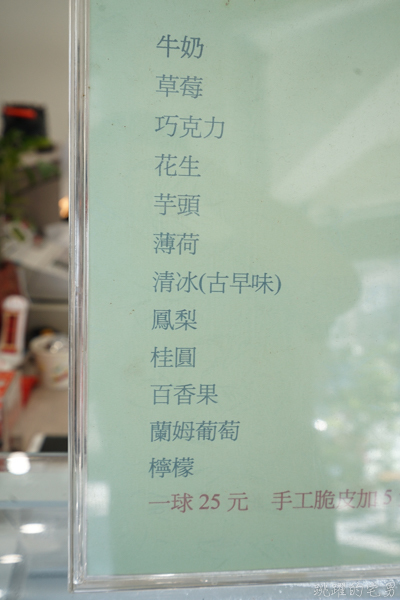 牛奶
草莓
巧克力
花生
芋頭
薄荷
清冰(古早味)
鳳梨
桂圓
百香果
蘭姆葡萄
檸檬
一球 25 元　手工脆皮加 5
跳躍的宅男